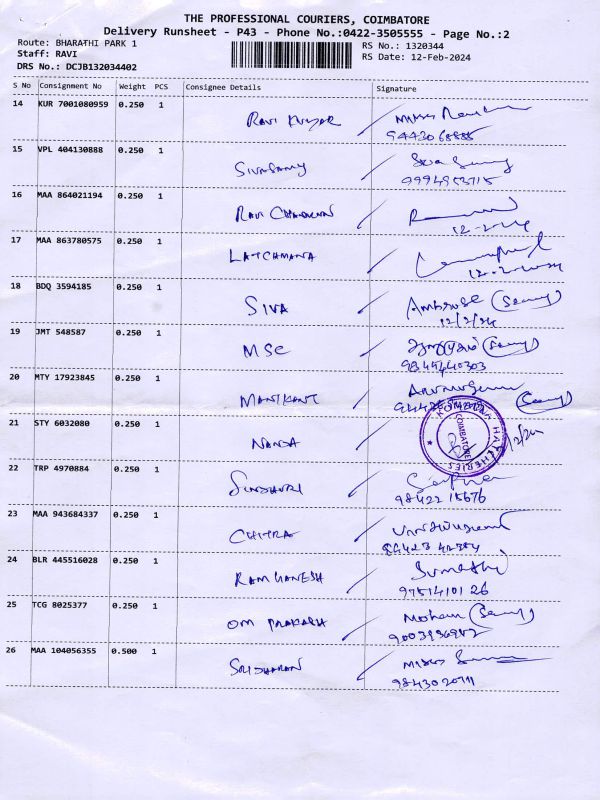 THE PROFESSIONAL COURIERS, COIMBATORE
Delivery Runsheet - P43 - Phone No.:0422-3505555 - Page No.:2
Route: BHARATHI PARK 1 RS No.: 1320344
Staff: RAVI RS Date: 12-Feb-2024
DRS No.: DCJB132034402
S No Consignment No Weight PCS Consignee Details Signature
14 KUR 7001080959 0.250 1
RAVI KUMAR
15 VPL 404130888 0.250 1
SIVASAMY
16 MAA 864021194 0.250 1
RAVI
12-2-24
17 MAA 863780575 0.250 1
LATCHMANA
12-2-2024
18 BDQ 3594185 0.250 1
SIVA Ambrose
12/2/24
19 JMT 548587 0.250 1
MSC
9384540303
20 MTY 17923845 0.250 1
MANIKANT
21 STY 6032080 0.250 1
NANDA
COIMBATORE
HATCHERIES
22 TRP 4970884 0.250 1
SINDHURI
98422 15676
23 MAA 943684337 0.250 1
CHITRA
24 BLR 445516028 0.250 1
RAM GANESH Sumathi
9751410126
25 TCG 8025377 0.250 1
OM PRAKASH Mohan
26 MAA 104056355 0.500 1
SRIDHARAN